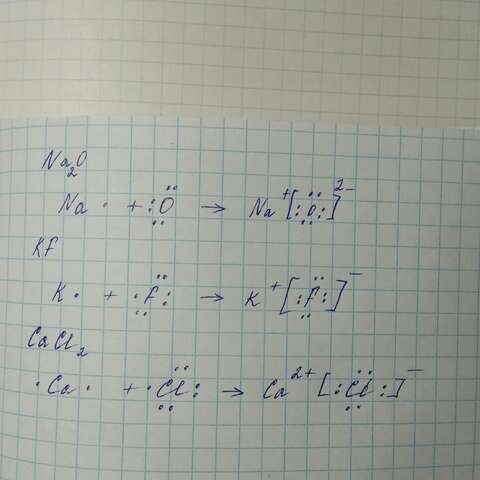 Na₂O
Na · + :Ö → Na⁺ [:Ö:]²⁻
KF
K · + ·F: → K⁺ [:F:]⁻
CaCl₂
·Ca· + ·Cl: → Ca²⁺ [:Cl:]⁻